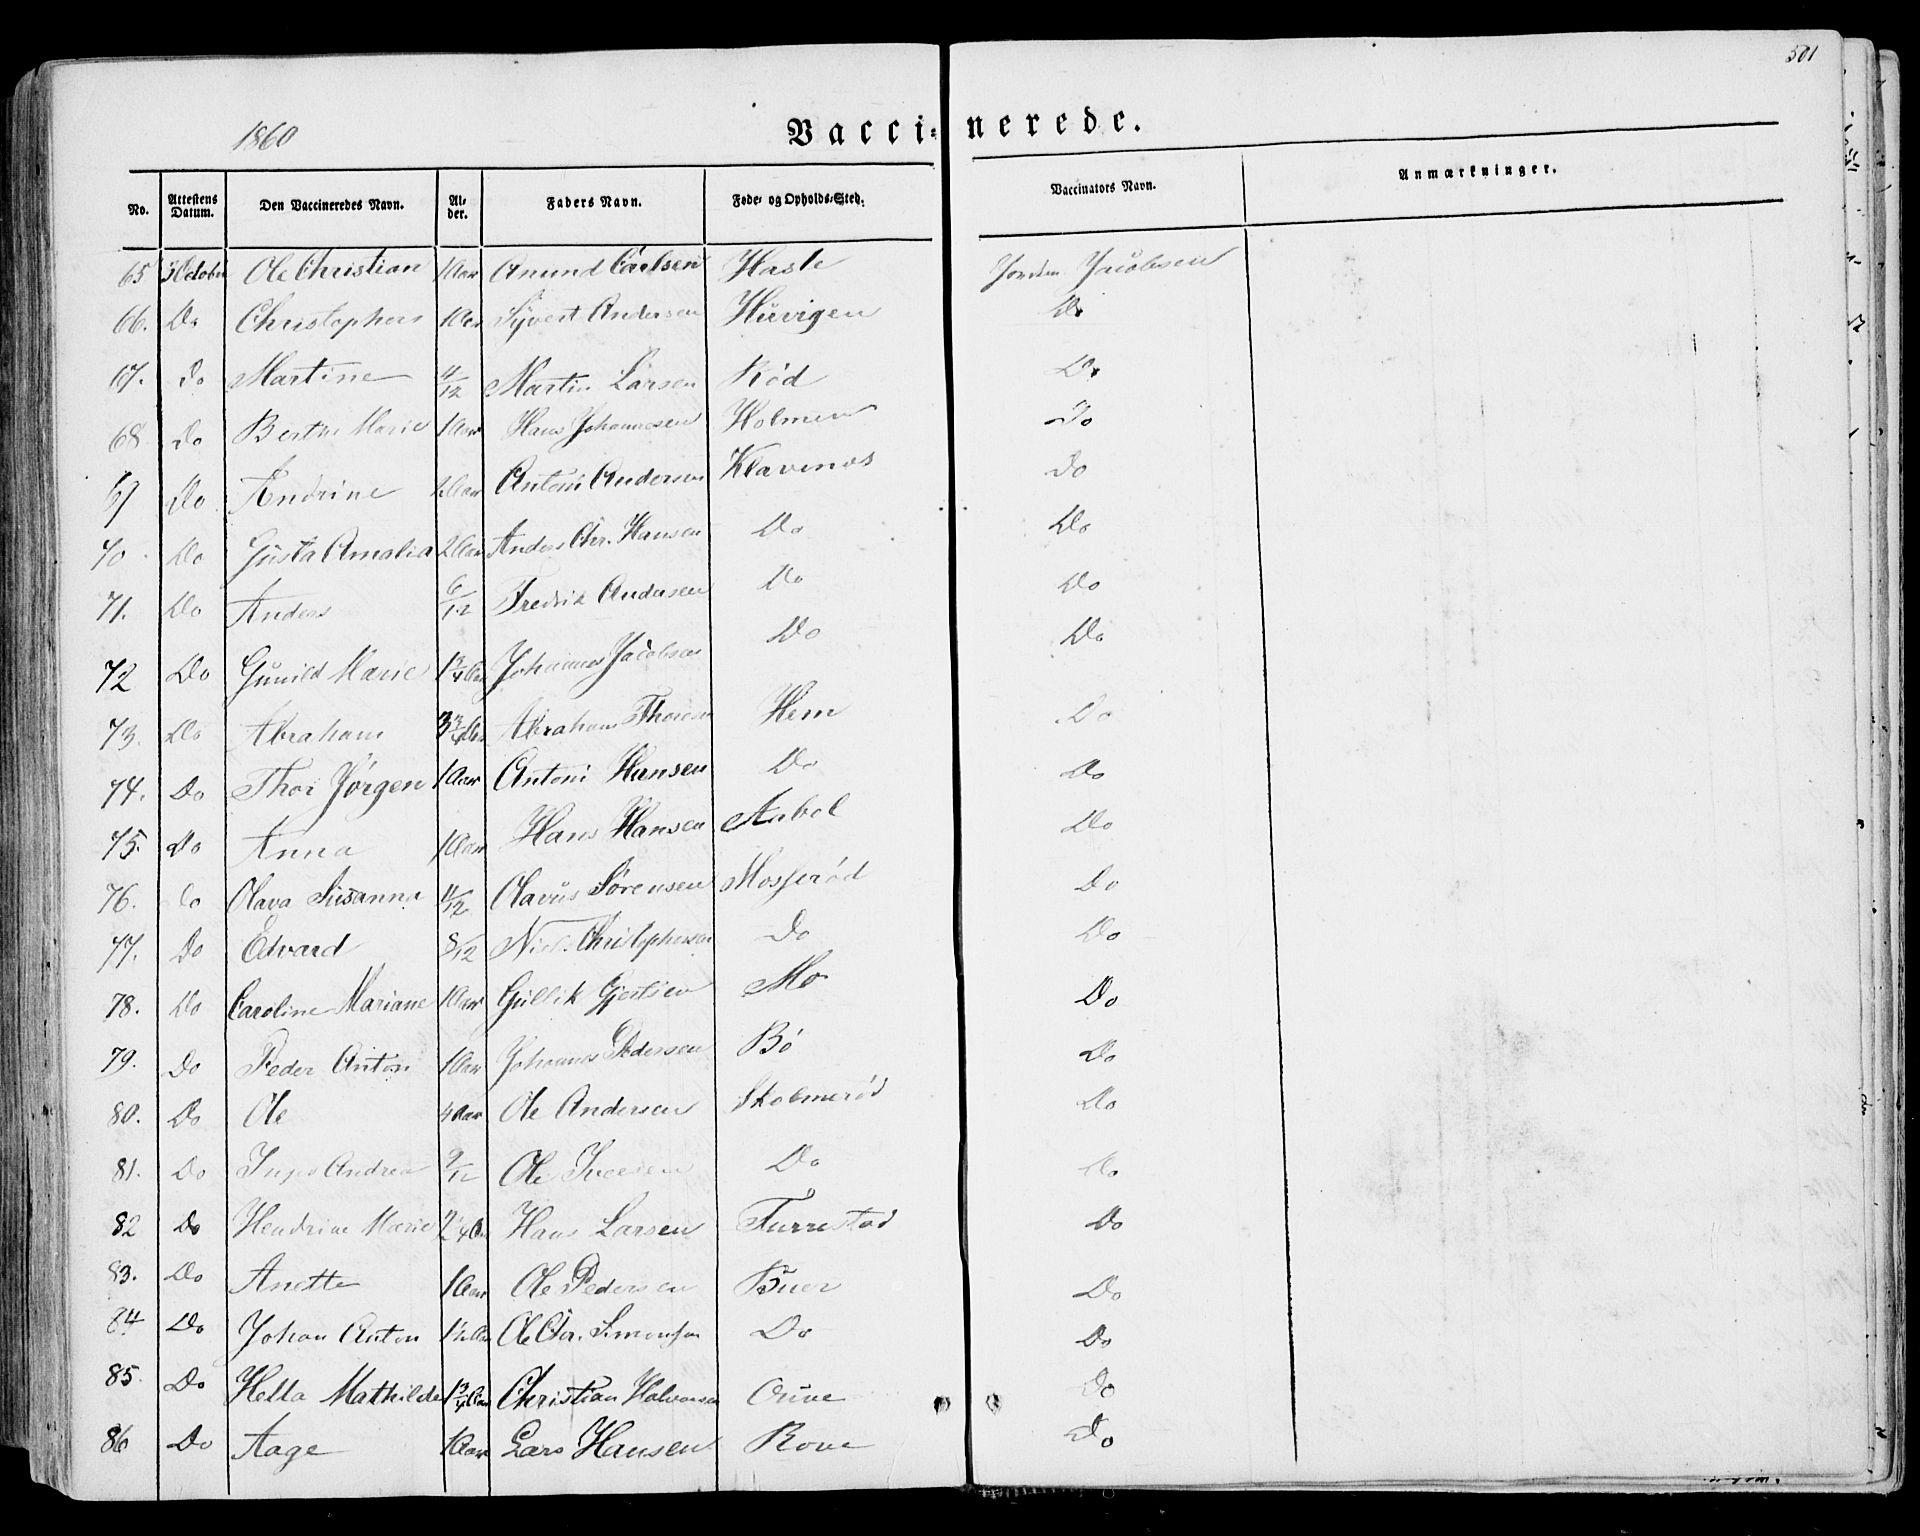 501
1860
Vaccinerede.
No. Attestens Datum. Den Vaccineredes Navn. Alder. Faders Navn. Føde- og Opholds-Sted. Vaccinators Navn. Anmærkninger.
65 October Ole Christian 1 Aar Anund Carlsen Hasle Jacobsen
66. Do Christopher 1 Aar Syvert Andersen Huvigen Do
67. Do Martine 11/12 Martin Larsen Rød Do
68 Do Berthe Marie 1 Aar Hans Johannesen Holmen Do
69 Do Andrine 2 Aar Antoni Andersen Klavenæs Do
70 Do Gusta Amalia 2 Aar Anders Chr. Hansen Do Do
71. Do Anders 6/12 Fredrik Andersen Do Do
72 Do Gunild Marie 1 3/4 Aar Johannes Jacobsen Do Do
73. Do Abraham 3 3/4 Aar Abraham Thoresen Hem Do
74. Do Thor Jørgen 1 Aar Antoni Hansen Do Do
75. Do Anna 1 Aar Hans Hansen Do
76. Do Olava Susanna 11/12 Olavus Sørensen Mosserød Do
77. Do Edvard 8/12 Christophersen Do Do
78. Do Caroline Mariane 1 Aar Gullik Gjertsen Mo Do
79. Do Peder Anton 1 Aar Johannes Pedersen Bø Do
80. Do Ole 4 Aar Ole Andersen Skolmerød Do
81. Do Andrea 9/12 Ole Iversen Do Do
82 Do Hendrine Marie 2 1/4 Aar Hans Larsen Furrestad Do
83. Do Anette 1 Aar Ole Pedersen Buer Do
84 Do Johan Anton 1 1/2 Aar Ole Chr. Simonsen Do Do
85. Do Hella Mathilde 1 3/4 Aar Christian Halvorsen Ouve Do
86 Do Aage 1 Aar Lars Hansen Rove Do